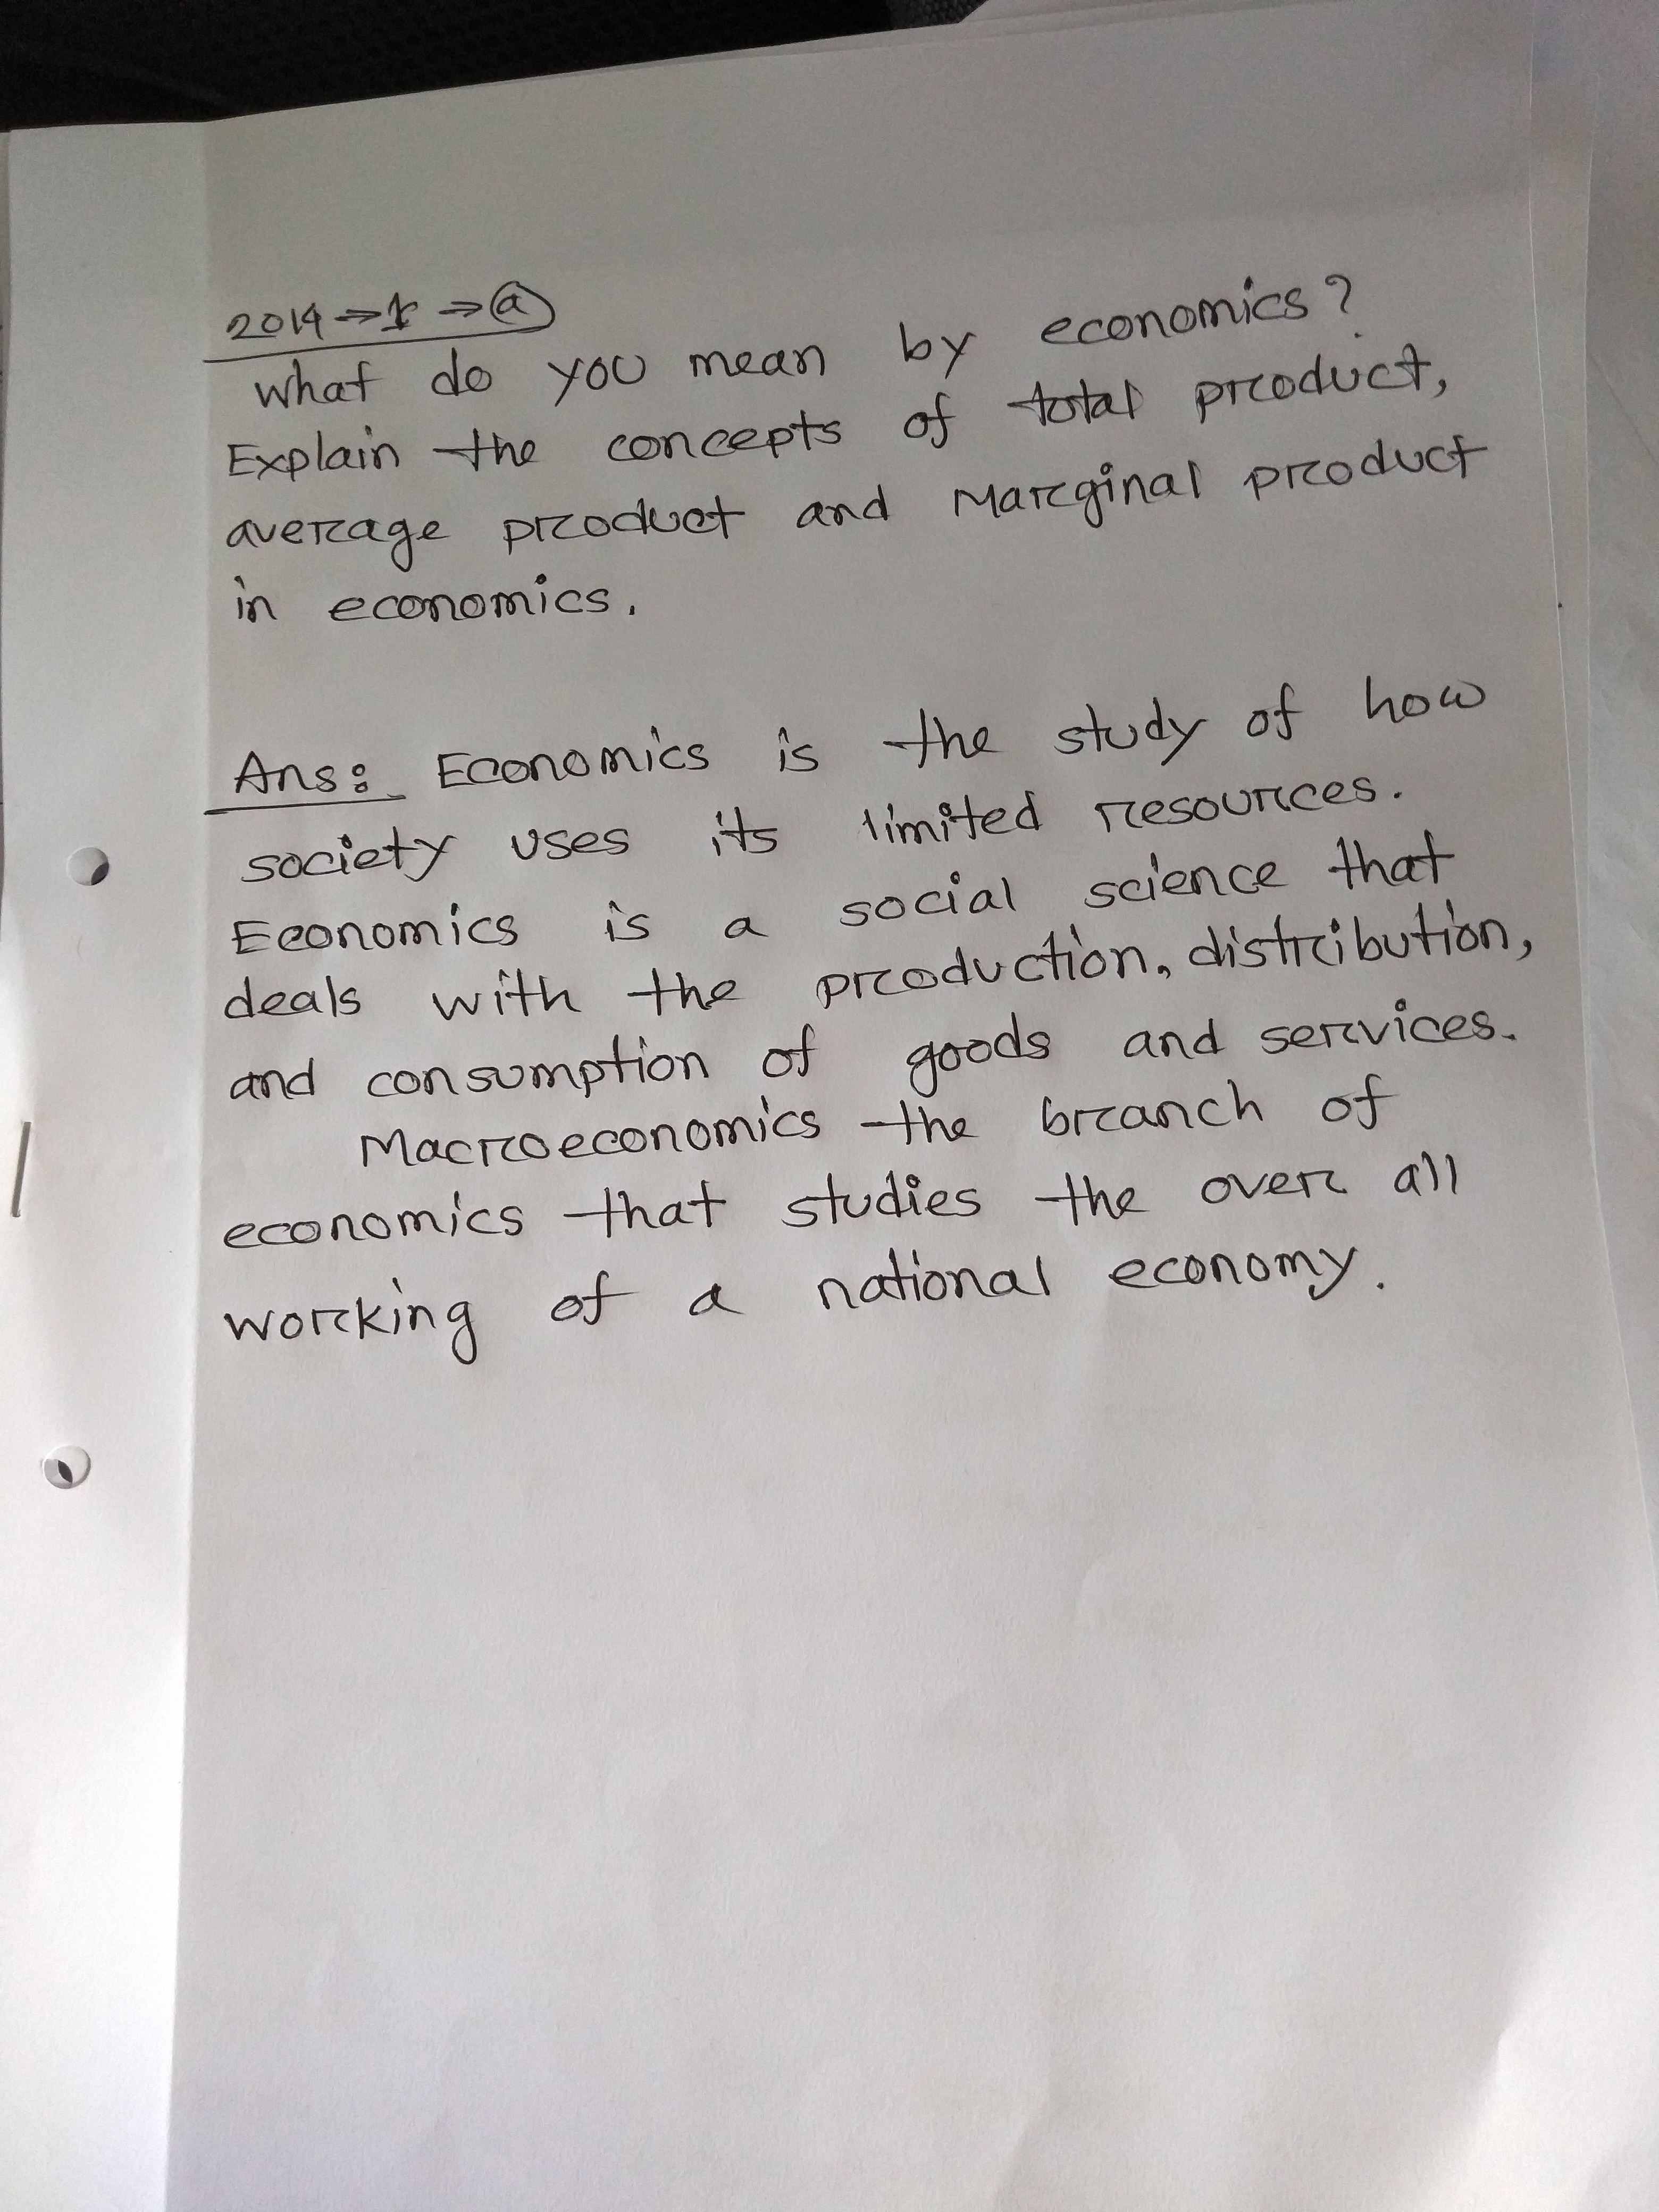 2014 ⇒ 1 ⇒ (a)
What do you mean by economics?
Explain the concepts of total product,
average product and Marginal product
in economics.
Ans: Economics is the study of how
society uses its limited resources.
Economics is a social science that
deals with the production, distribution,
and consumption of goods and services.
Macroeconomics the branch of
economics that studies the over all
working of a national economy.